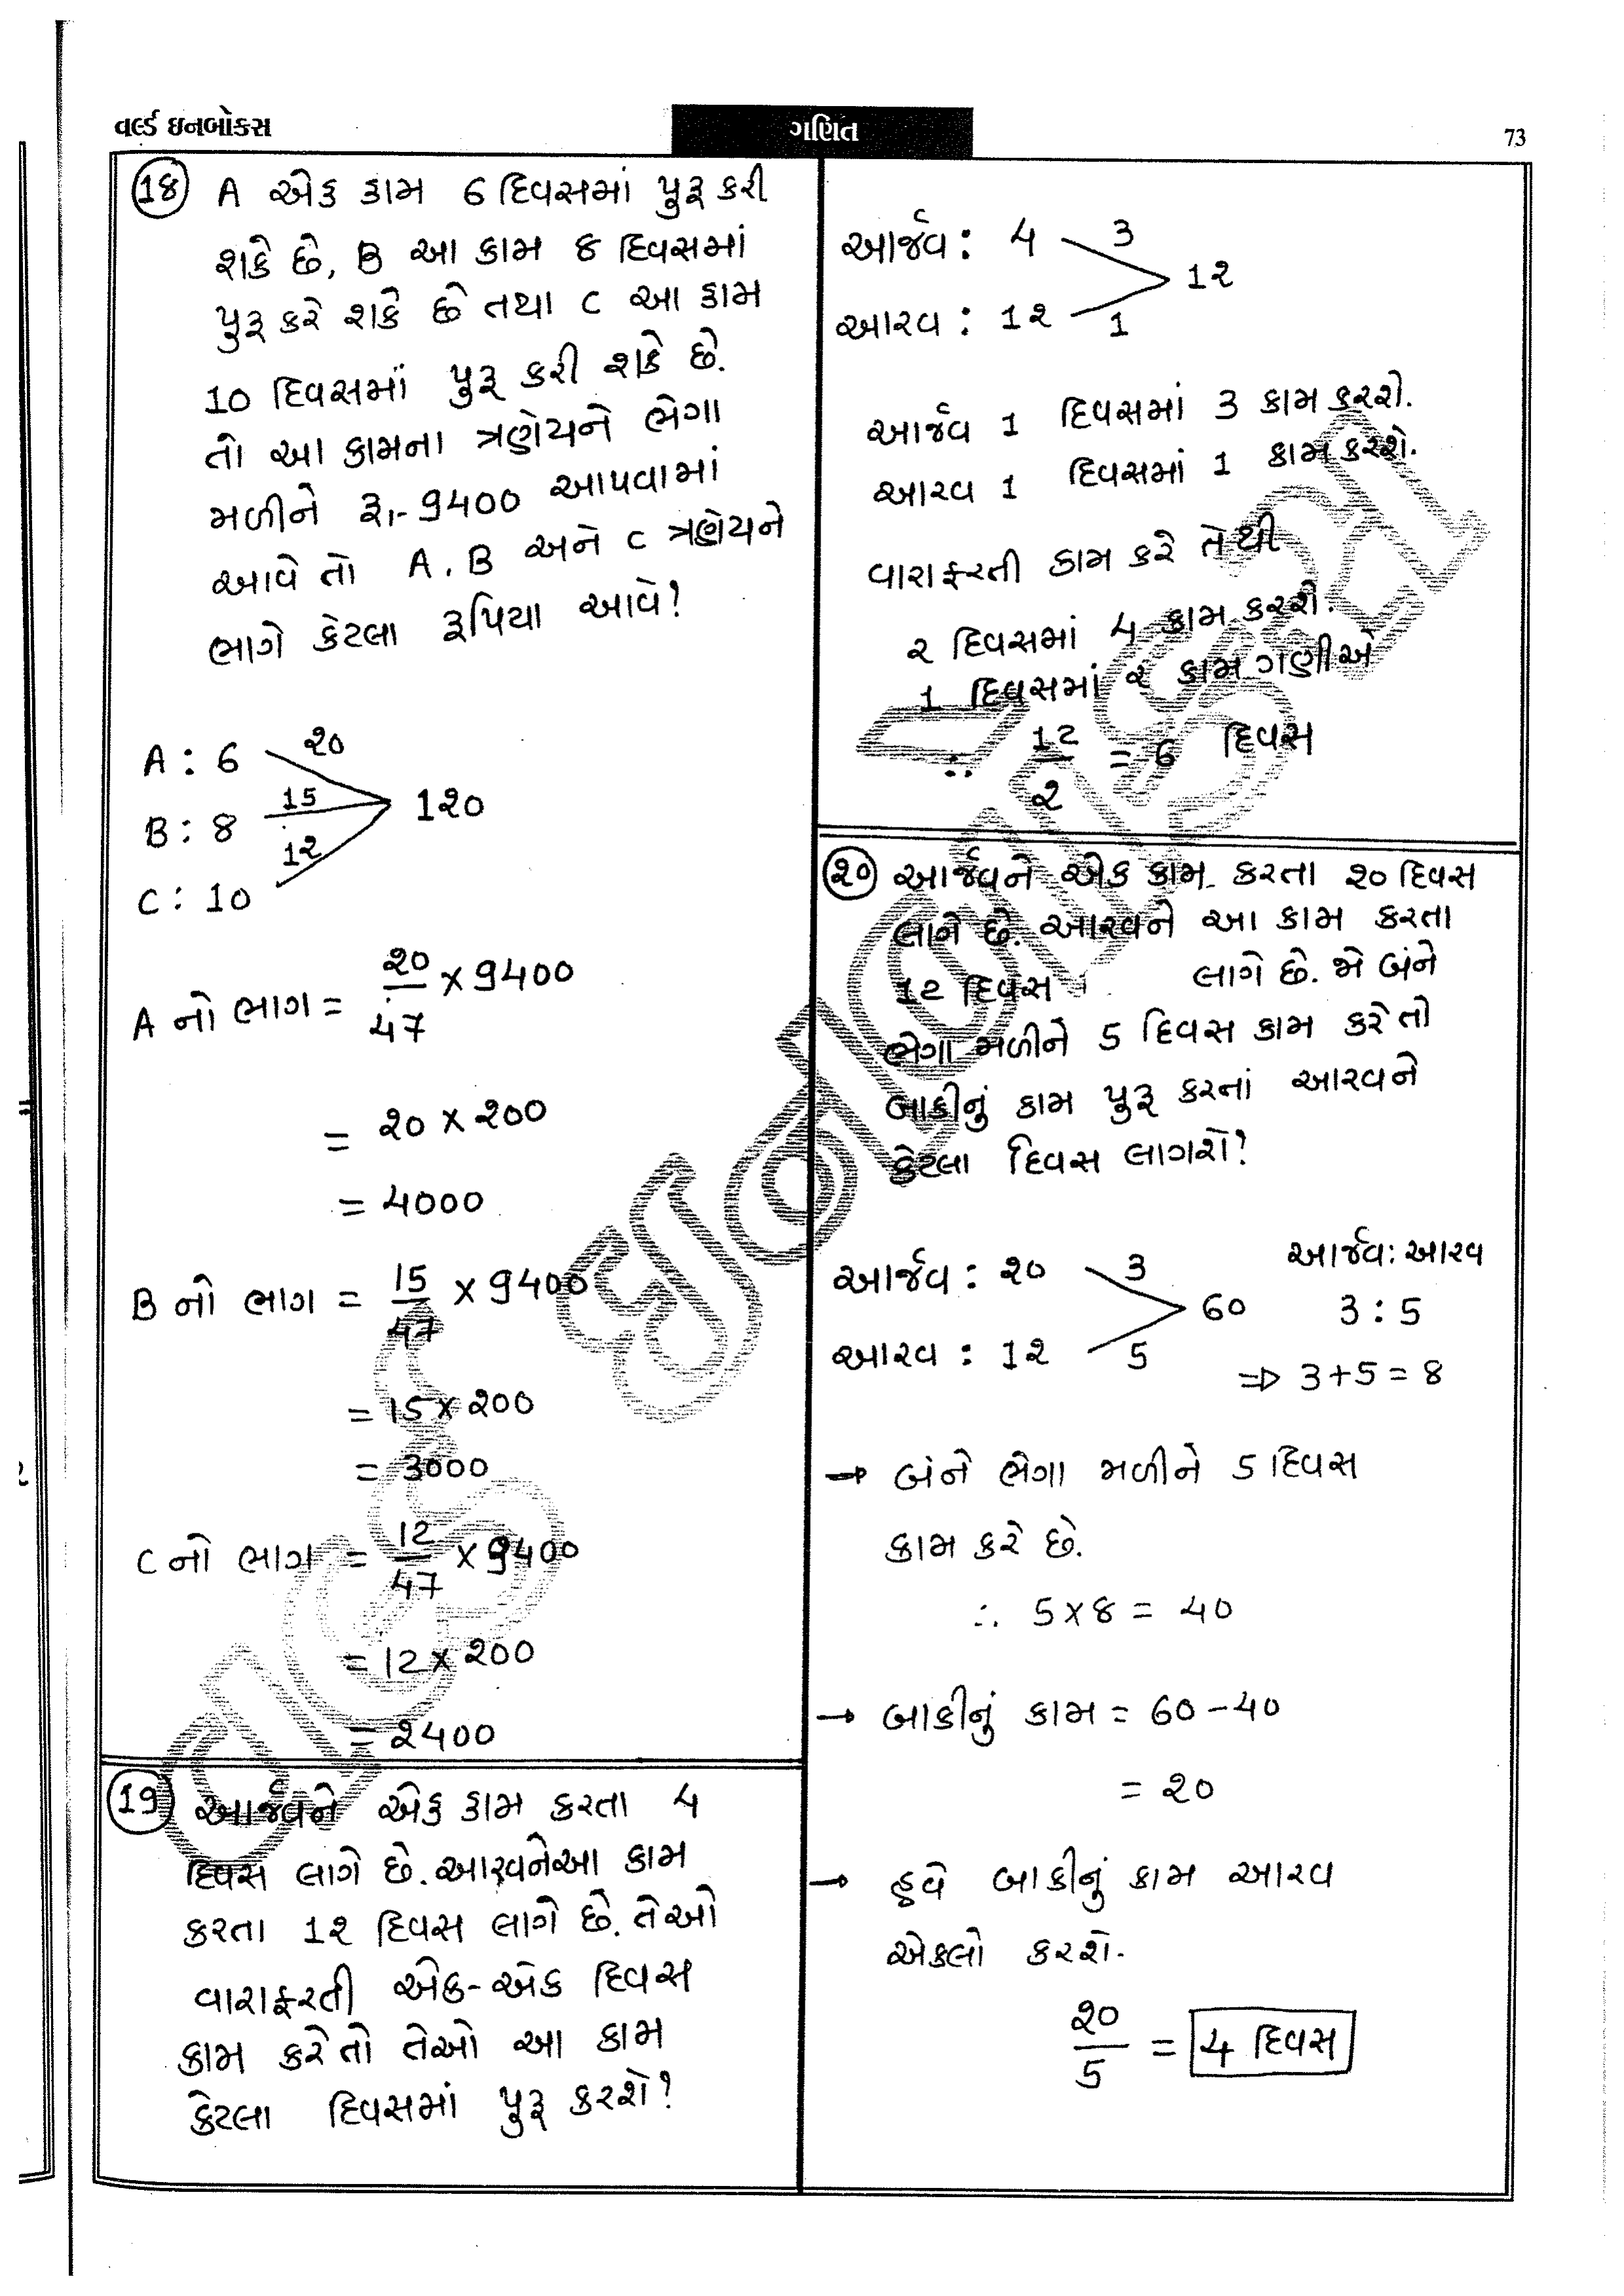 વર્લ્ડ ઇનબોકસ
ગણિત
73
18 A એક કામ 6 દિવસમાં પુરૂ કરી
શકે છે, B આ કામ 8 દિવસમાં
પુરૂ કરે શકે છે તથા C આ કામ
10 દિવસમાં પુરૂ કરી શકે છે.
તો આ કામના ત્રણેયને ભેગા
મળીને રૂ।.- 9400 આપવામાં
આવે તો A, B અને C ત્રણેયને
ભાગે કેટલા રૂપિયા આવે?
A : 6 20
B : 8 15 120
C : 10 12
A નો ભાગ = 20/47 × 9400
= 20 × 200
= 4000
B નો ભાગ = 15/47 × 9400
= 15 × 200
= 3000
C નો ભાગ = 12/47 × 9400
= 12 × 200
= 2400
19 આર્જવને એક કામ કરતા 4
દિવસ લાગે છે. આરવને આ કામ
કરતા 12 દિવસ લાગે છે. તેઓ
વારાફરતી એક-એક દિવસ
કામ કરે તો તેઓ આ કામ
કેટલા દિવસમાં પુરૂ કરશે?
આર્જવ : 4 3
12
આરવ : 12 1
આર્જવ 1 દિવસમાં 3 કામ કરશે.
આરવ 1 દિવસમાં 1 કામ કરશે.
વારાફરતી કામ કરે તેથી
2 દિવસમાં 4 કામ કરશે.
1 દિવસમાં 2 કામ ગણીએ
∴ 12/2 = 6 દિવસ
20 આર્જવને એક કામ કરતા 20 દિવસ
લાગે છે. આરવને આ કામ કરતા
12 દિવસ લાગે છે. જો બંને
ભેગા મળીને 5 દિવસ કામ કરે તો
બાકીનું કામ પુરૂ કરનાં આરવને
કેટલા દિવસ લાગશે?
આર્જવ : 20 3 આર્જવ : આરવ
60 3 : 5
આરવ : 12 5
⇒ 3+5 = 8
→ બંને ભેગા મળીને 5 દિવસ
કામ કરે છે.
∴ 5×8 = 40
→ બાકીનું કામ = 60 - 40
= 20
→ હવે બાકીનું કામ આરવ
એકલો કરશે.
20/5 = 4 દિવસ